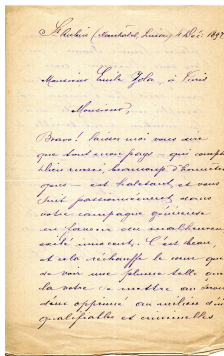 St Aubin (Neuchâtel, Suisse) 4 Déc. 1897
Monsieur Emile Zola, à Paris
Monsieur,
Bravo! laissez moi vous dire
que tout mon pays - qui compte
bien, beaucoup d'honnêtes
gens - est haletant, et vous
suit passionnément dans
votre campagne généreuse
en faveur du malheureux
exilé innocent. C'est beau,
et cela réchauffe le cœur que
de voir une plume telle que
la votre se mettre au service
d'un opprimé au milieu d'in
qualifiables et criminelles